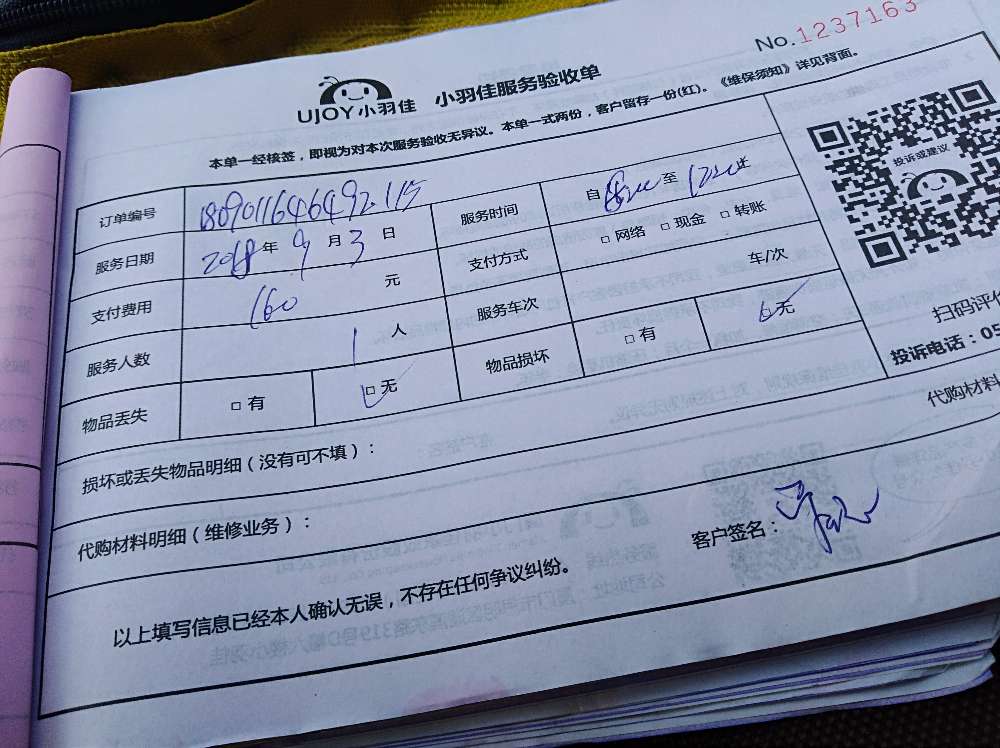 No.1237163
UJOY小羽佳 小羽佳服务验收单
本单一经核签，即视为对本次服务验收无异议。本单一式两份，客户留存一份(红)。《维保须知》详见背面。
投诉或建议
订单编号 服务时间 自 至 止
服务日期 2018年9月3日 支付方式 □ 网络 □ 现金 □ 转账
支付费用 160 元 服务车次 车/次
服务人数 1 人 物品损坏 □ 有 □ 无
物品丢失 □ 有 □ 无
扫码评价
投诉电话：05
损坏或丢失物品明细（没有可不填）：
代购材料
代购材料明细（维修业务）：
客户签名：
以上填写信息已经本人确认无误，不存在任何争议纠纷。